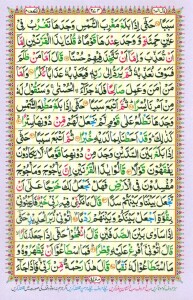 سَبَبًا ۝ حَتّٰۤى اِذَا بَلَغَ مَغْرِبَ الشَّمْسِ وَجَدَهَا تَغْرُبُ فِیْ
عَیْنٍ حَمِئَةٍ وَّ وَجَدَ عِنْدَهَا قَوْمًا قُلْنَا یٰذَا الْقَرْنَیْنِ اِمَّاۤ
اَنْ تُعَذِّبَ وَ اِمَّاۤ اَنْ تَتَّخِذَ فِیْهِمْ حُسْنًا ۝ قَالَ اَمَّا مَنْ ظَلَمَ
فَسَوْفَ نُعَذِّبُهٗ ثُمَّ یُرَدُّ اِلٰى رَبِّهٖ فَیُعَذِّبُهٗ عَذَابًا نُّكْرًا ۝ وَ اَمَّا
مَنْ اٰمَنَ وَ عَمِلَ صَالِحًا فَلَهٗ جَزَآءَ ِ۟الْحُسْنٰى وَ سَنَقُوْلُ لَهٗ
مِنْ اَمْرِنَا یُسْرًا ۝ ثُمَّ اَتْبَعَ سَبَبًا ۝ حَتّٰۤى اِذَا بَلَغَ مَطْلِعَ الشَّمْسِ
وَجَدَهَا تَطْلُعُ عَلٰى قَوْمٍ لَّمْ نَجْعَلْ لَّهُمْ مِّنْ دُوْنِهَا سِتْرًا ۝
كَذٰلِكَ وَ قَدْ اَحَطْنَا بِمَا لَدَیْهِ خُبْرًا ۝ ثُمَّ اَتْبَعَ سَبَبًا ۝ حَتّٰۤى
اِذَا بَلَغَ بَیْنَ السَّدَّیْنِ وَجَدَ مِنْ دُوْنِهِمَا قَوْمًا لَّا یَكَادُوْنَ
یَفْقَهُوْنَ قَوْلًا ۝ قَالُوْا یٰذَا الْقَرْنَیْنِ اِنَّ یَاْجُوْجَ وَ مَاْجُوْجَ
مُفْسِدُوْنَ فِی الْاَرْضِ فَهَلْ نَجْعَلُ لَكَ خَرْجًا عَلٰۤى اَنْ تَجْعَلَ
بَیْنَنَا وَ بَیْنَهُمْ سَدًّا ۝ قَالَ مَا مَكَّنِّیْ فِیْهِ رَبِّیْ خَیْرٌ فَاَعِیْنُوْنِیْ
بِقُوَّةٍ اَجْعَلْ بَیْنَكُمْ وَ بَیْنَهُمْ رَدْمًا ۝ اٰتُوْنِیْ زُبَرَ الْحَدِیْدِ حَتّٰۤى
اِذَا سَاوٰى بَیْنَ الصَّدَفَیْنِ قَالَ انْفُخُوْا حَتّٰۤى اِذَا جَعَلَهٗ نَارًا
قَالَ اٰتُوْنِیْۤ اُفْرِغْ عَلَیْهِ قِطْرًا ۝ فَمَا اسْطَاعُوْۤا اَنْ یَّظْهَرُوْهُ وَ
مَا اسْتَطَاعُوْا لَهٗ نَقْبًا ۝ قَالَ هٰذَا رَحْمَةٌ مِّنْ رَّبِّیْ فَاِذَا جَآءَ